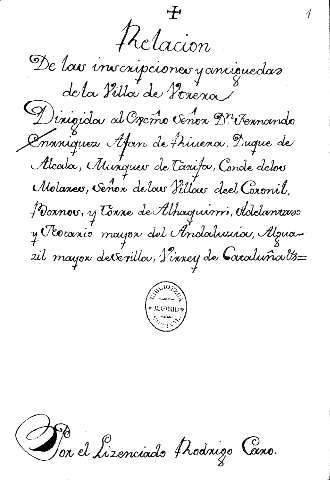 ✝
1
Relacion
De las inscripciones y antiguedas
de la Villa de Vtrera
Dirigida al Excmo Señor Dn. Fernando
Enrriquez Afan de Rivera, Duque de
Alcala, Marques de Tarifa, Conde delos
Molares, Señor de las Villas deel Coronil,
Bornos, y Torre de Alhaquimi, Adelantado
y Notario mayor del Andalucia, Algua-
zil mayor de Sevilla, Virrey de Cataluña &=
BIBLIOTECA
MADRID
Por el Lizenciado Rodrigo Caro.